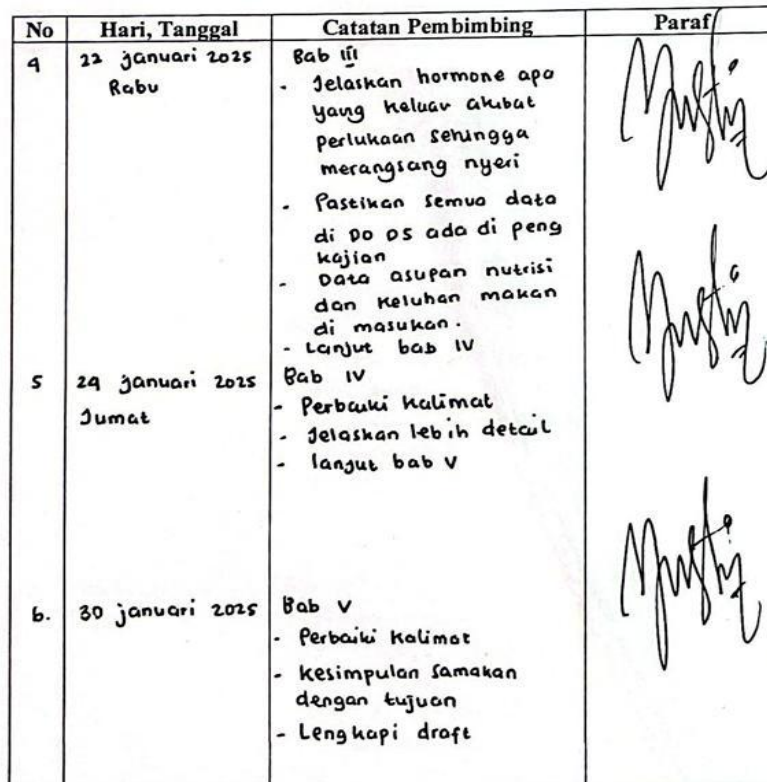 No Hari, Tanggal Catatan Pembimbing Paraf
4 22 januari 2025 Bab III
Rabu - Jelaskan hormone apa
yang keluar akibat
perlukaan sehingga
merangsang nyeri
- Pastikan semua data
di DO DS ada di peng
kajian
- Data asupan nutrisi
dan keluhan makan
di masukan.
- Lanjut bab IV
5 24 januari 2025 Bab IV
Jumat - Perbaiki kalimat
- Jelaskan lebih detail
- lanjut bab V
6. 30 januari 2025 Bab V
- Perbaiki kalimat
- kesimpulan samakan
dengan tujuan
- Lengkapi draft